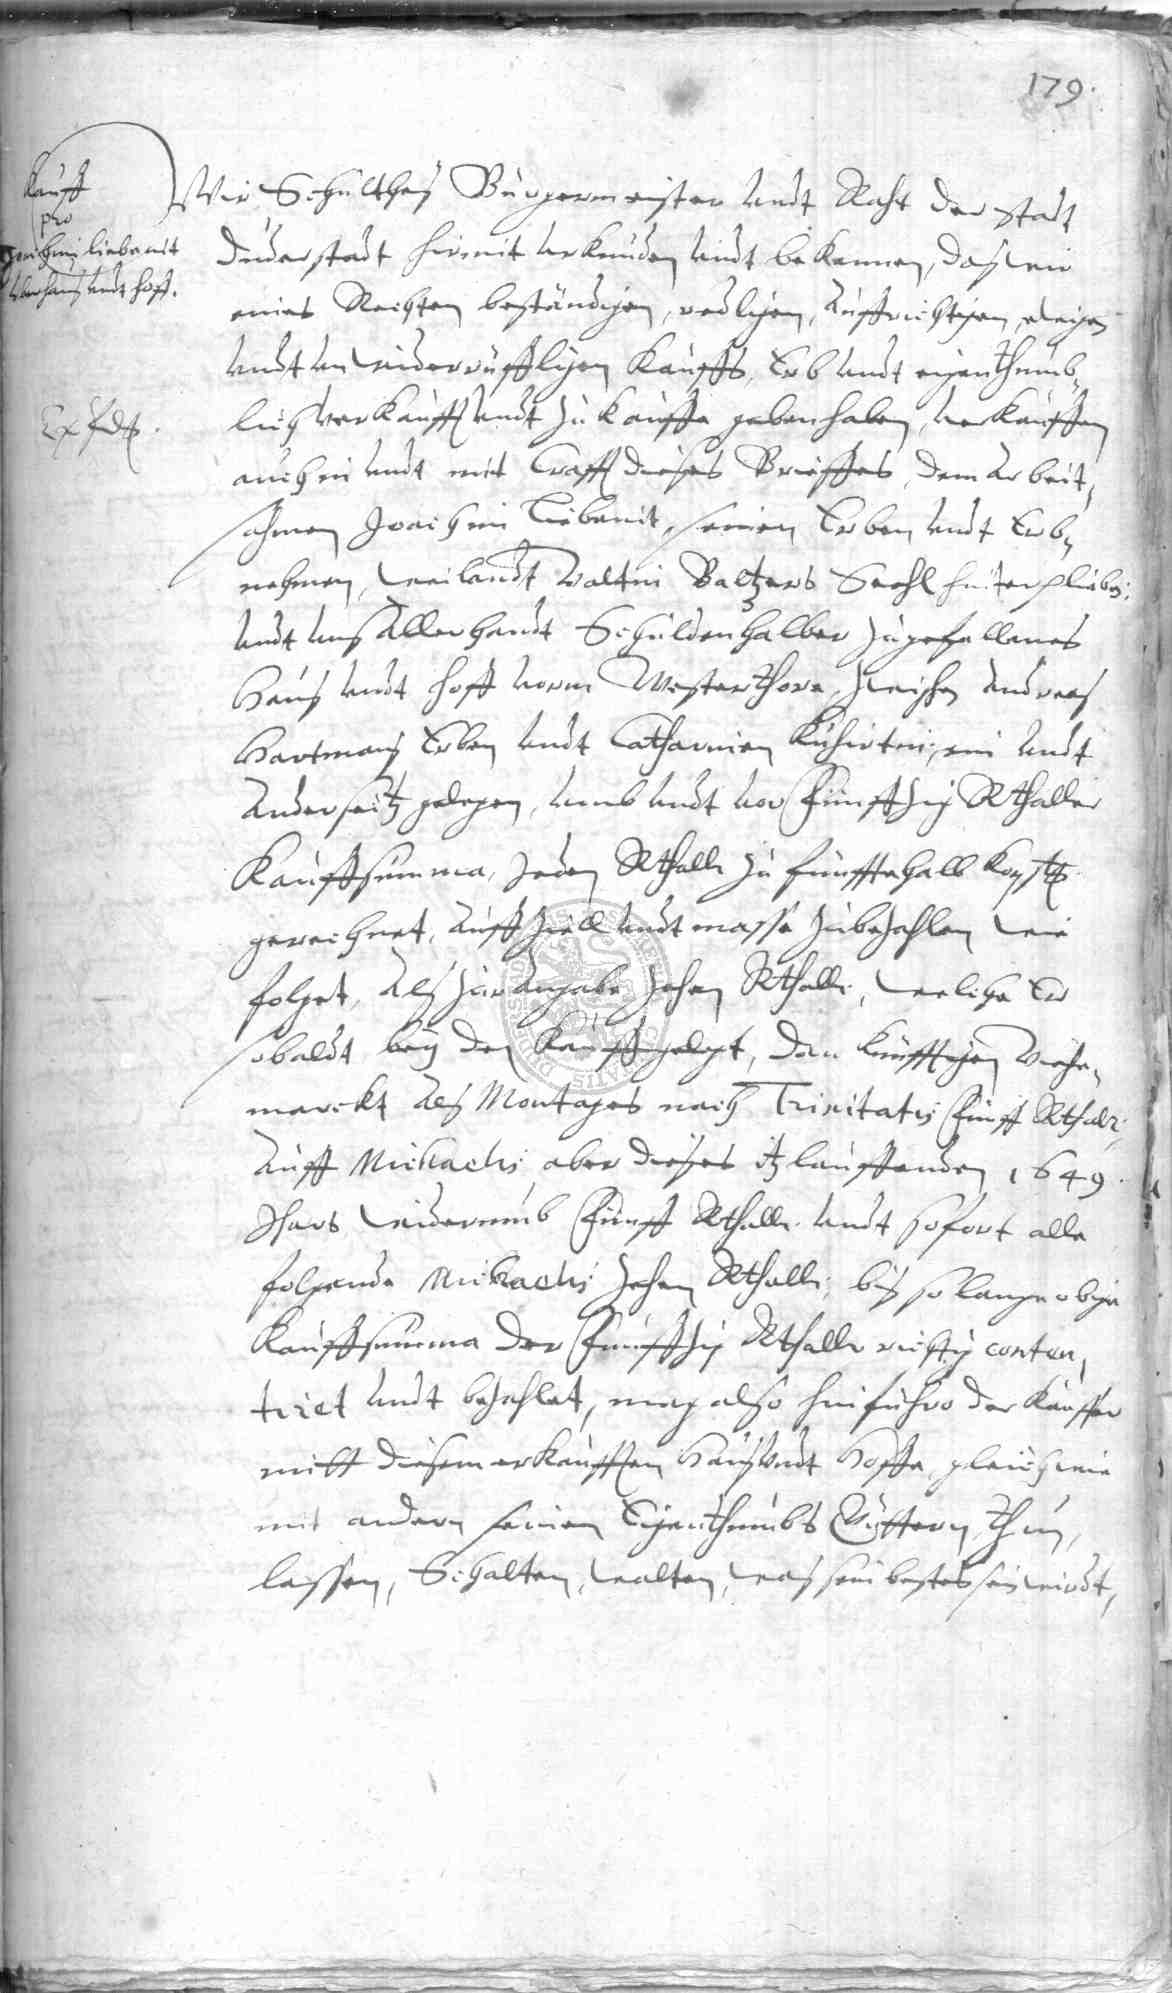 179.
Kauff
pro
Joachimi Liebenit
uber hauß undt hoff.
Wir Schultheß Bürgermeister undt Raht der Stadt
Duderstadt hirmit urkunden undt bekennen, daß wir
eines Rechten beständigen, redligen, auffrichtigen, ewigen
undt unwiderruffligen Kauffs, Erb undt eigenthumb,
lich verkaufft undt zu kauffe geben haben, verkauffen
auch in undt mit Crafft dieses Brieffes, dem arbeit,
sahmen Joachimi Liebenit, seinen Erben undt Erb,
nehmen, weilandt Valtni Baltzers Seehl hinterplieb:
undt unß allerhandt Schulden halber zugefallenes
Hauß undt hoff vorm Westerthore, zwischen Andreas
Hartmans Erben undt Catharinen Kuhirtin, ein undt
anderseitz gelegen, umb undt vor Fünffzig Rthaller
Kauffsumma, Jeden Rthall. zu fünfftehalb
gerechnet, auff Ziell undt masse zubezahlen wie
folget, Alß zur Angabe zehen Rthall., weliche Er
sobaldt bey den Kauff gelegt, dan künfftigen Viehe,
marckt alß Montages nach Trinitatis Fünff Rthalr.
auff Michaelis aber dieses itzlauffenden 1649.
Jhars widerumb Fünff Rthall. undt sofort alle
folgende Michaelis zehen Rthall., biß so lange obige
Kauffsumma der Fünffzig Rthall. richtig conten,
tiret undt bezahlet, mag also hinfuhro der Käuffer
mitt diesem erkaufften Hauß undt Hoffe, gleich wie
mit andern seinen Eigenthumbs Güttern, thun,
lassen, Schalten, walten, waß sein bestes sein wirdt,